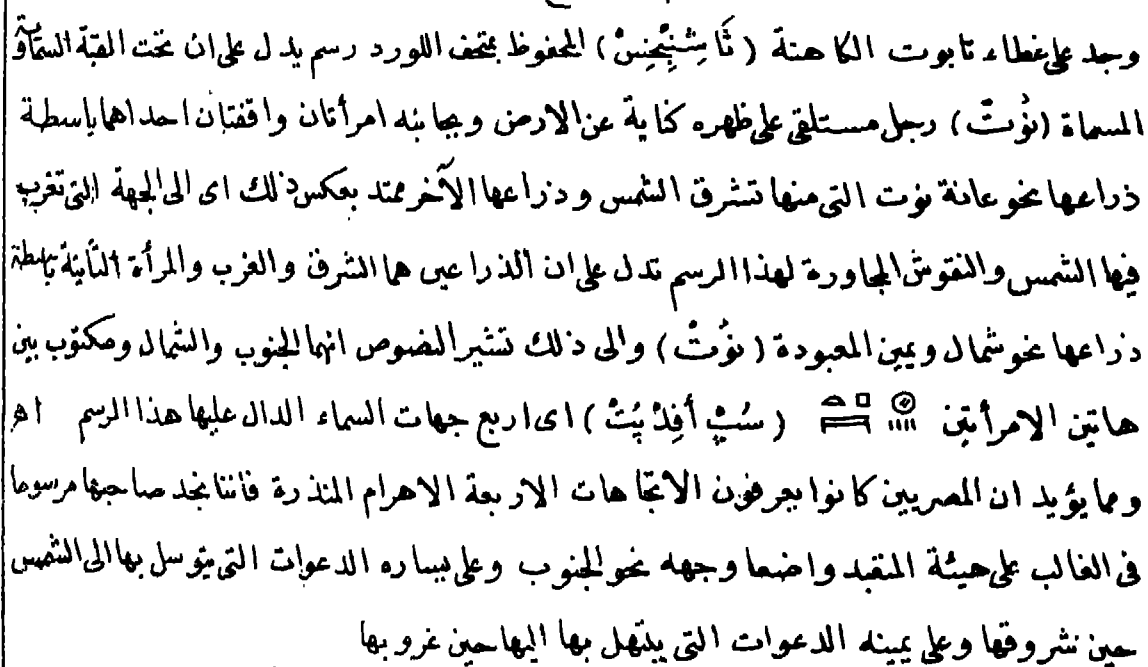 وجد على غطاء تابوت الكاهنة (ثَا شِنْبِخِنِسْ) المحفوظ بمتحف اللورد رسم يدل على ان تحت القبة السماوية
المسماة (نُوُتّ) رجل مستلقى على ظهره كناية عن الارض وبجانبه امرأتان واقفتان احداهما باسطة
ذراعها نحو عانة نوت التى منها تشرق الشمس وذراعها الآخر ممتد بعكس ذلك اى الى الجهة التى تغرب
فيها الشمس والنقوش المجاورة لهذا الرسم تدل على ان الذراعين هما الشرق والغرب والمرأة الثانية باسطة
ذراعها نحو شمال ويمين المعبودة (نُوُتْ) والى ذلك تشير النصوص انهما الجنوب والشمال ومكتوب بين
هاتين الامرأتين (سُبْ أَفِدْ بِتْ) اى اربع جهات السماء الدال عليها هذا الرسم اهر
ومما يؤيد ان المصريين كانوا يعرفون الاتجاهات الاربعة الاهرام المنذرة فاننا نجد صاحبها مرسوما
فى الغالب على هيئة المتعبد واضعا وجهه نحو الجنوب وعلى يساره الدعوات التى يتوسل بها الى الشمس
حين شروقها وعلى يمينه الدعوات التى يبتهل بها اليها حين غروبها